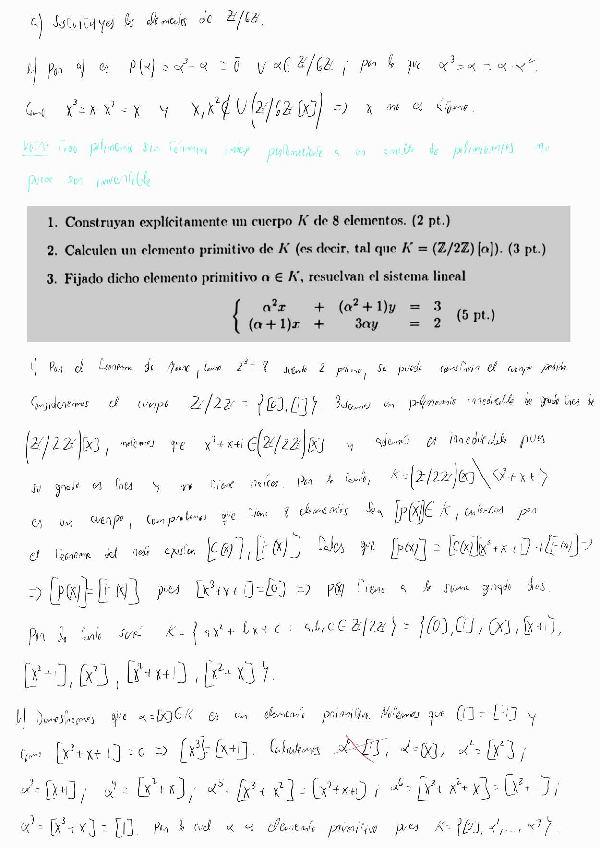 a) Sustituyes los elementos de Z/6Z.
b) Por a) es P(α) = α³ - α = 0̄ ∀ α ∈ Z/6Z; por lo que α³ = α
Como x³ = x y x, x² ∉ U(Z/6Z[x]) => x no es
Nota: Todo polinomio sin término perteneciente a un anillo de polinomios no
puede ser invertible
1. Construyan explícitamente un cuerpo K de 8 elementos. (2 pt.)
2. Calculen un elemento primitivo de K (es decir, tal que K = (Z/2Z)[α]). (3 pt.)
3. Fijado dicho elemento primitivo α ∈ K, resuelvan el sistema lineal
{ α²x + (α² + 1)y = 3
(α + 1)x + 3αy = 2 (5 pt.)
1) Por el teorema de, como 2³ = 8 siendo 2 primo, se puede construir el cuerpo pedido
Consideremos el cuerpo Z/2Z = {[0],[1]} Buscamos un polinomio irreducible de grado tres de
(Z/2Z)[x], notemos que x³+x+1 ∈ (Z/2Z)[x] y además es irreducible pues
su grado es tres y no tiene raíces. Por lo tanto, K = (Z/2Z)[x] \ <x³+x+1>
es un cuerpo, comprobemos que tiene 8 elementos Sea [p(x)] ∈ K, entonces por
el teorema del resto existen [C(x)], [r(x)] tales que [p(x)] = [C(x)][x³+x+1]+[r(x)] =>
=> [p(x)] = [r(x)] pues [x³+x+1] = [0] => p(x) tiene a lo sumo grado dos.
Por lo tanto será K = { ax² + bx + c : a,b,c ∈ Z/2Z } = {[0],[1],[x],[x+1],
[x²+1], [x²], [x²+x+1], [x²+x] }.
b) Demostremos que α=[x] ∈ K es un elemento primitivo. Notemos que [1] = [-1] y
como [x³+x+1] = 0 => [x³] = [x+1]. Calculemos α = [x], α² = [x²];
α³ = [x+1]; α⁴ = [x²+x]; α⁵ = [x³+x²] = [x²+x+1]; α⁶ = [x³+x²+x] = [x²+1];
α⁷ = [x³+x] = [1]. Por lo cual α es elemento primitivo pues K = {[0], α, ..., α⁷}.